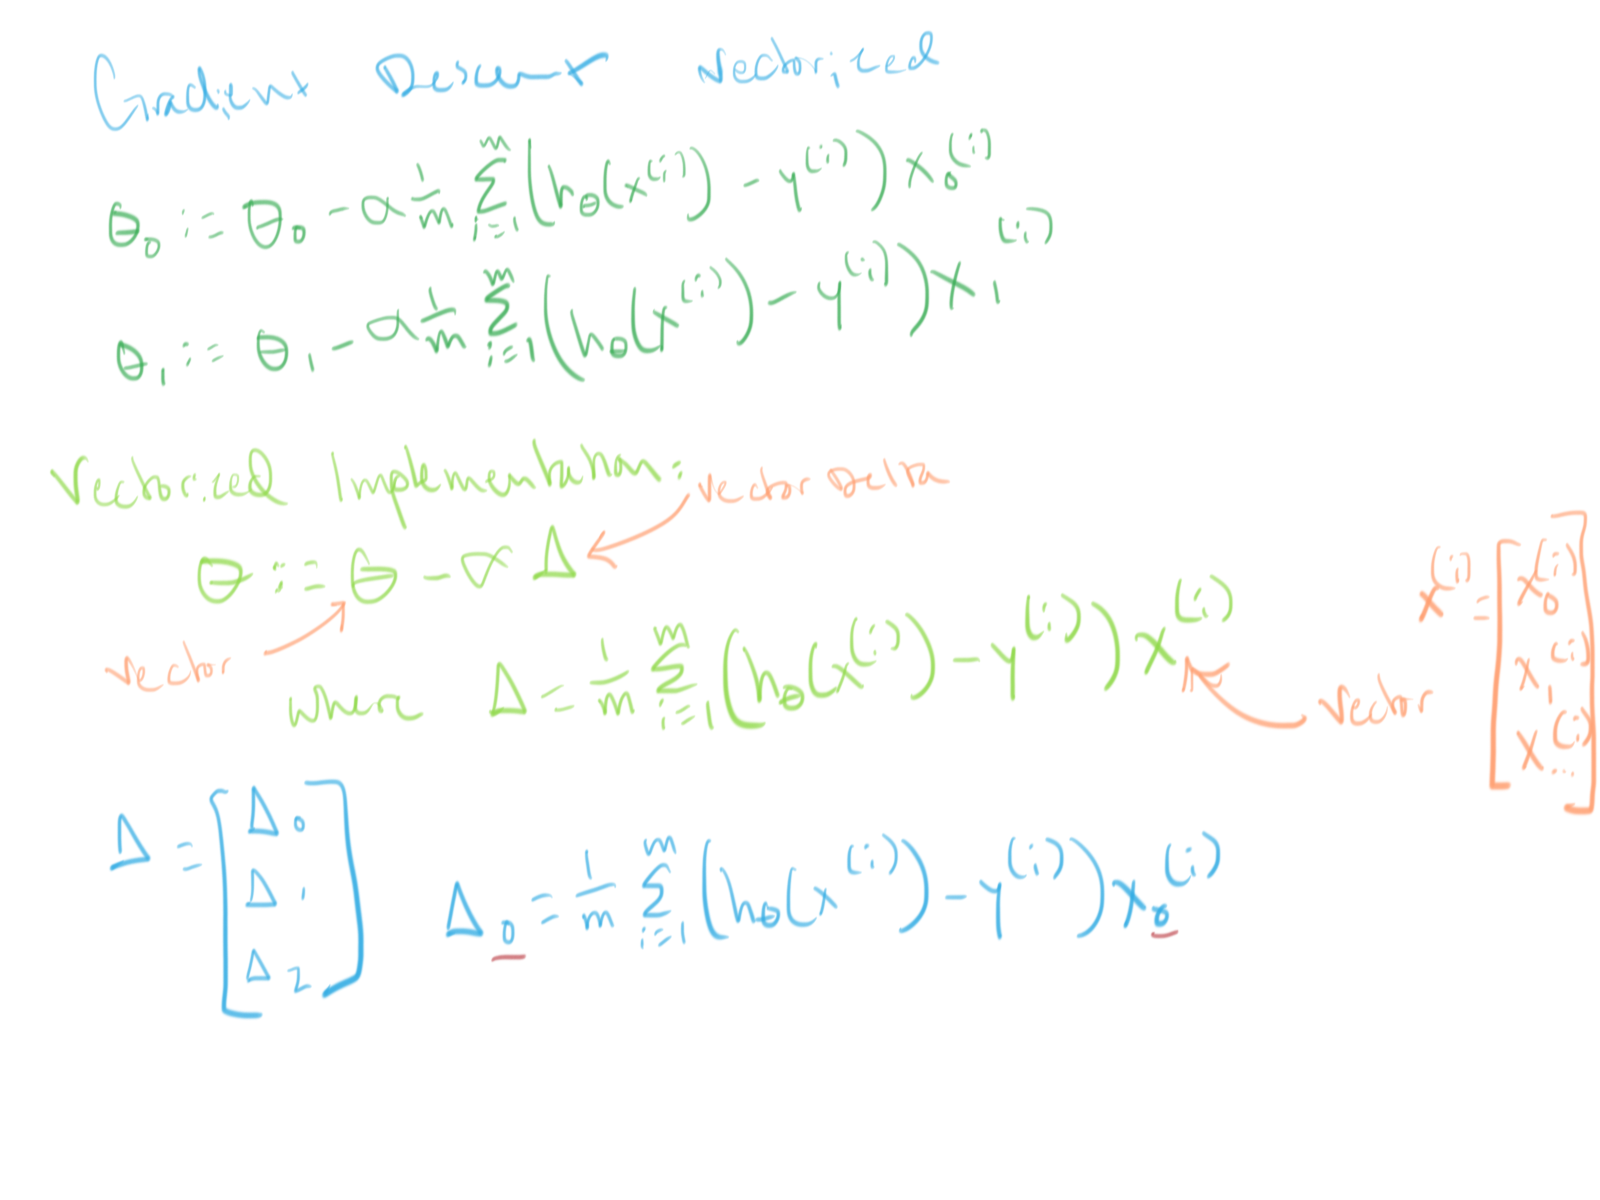 Gradient Descent Vectorized
θ₀ := θ₀ - α 1/m Σᵢ₌₁ᵐ (hθ(x⁽ⁱ⁾) - y⁽ⁱ⁾) x₀⁽ⁱ⁾
θ₁ := θ₁ - α 1/m Σᵢ₌₁ᵐ (hθ(x⁽ⁱ⁾) - y⁽ⁱ⁾) x₁⁽ⁱ⁾
Vectorized Implementation:
Vector Delta
θ := θ - α Δ
Vector
where Δ = 1/m Σᵢ₌₁ᵐ (hθ(x⁽ⁱ⁾) - y⁽ⁱ⁾) x⁽ⁱ⁾
Vector
x⁽ⁱ⁾ = [x₀⁽ⁱ⁾
x₁⁽ⁱ⁾
x...⁽ⁱ⁾]
Δ = [Δ₀
Δ₁
Δ₂]
Δ₀ = 1/m Σᵢ₌₁ᵐ (hθ(x⁽ⁱ⁾) - y⁽ⁱ⁾) x₀⁽ⁱ⁾